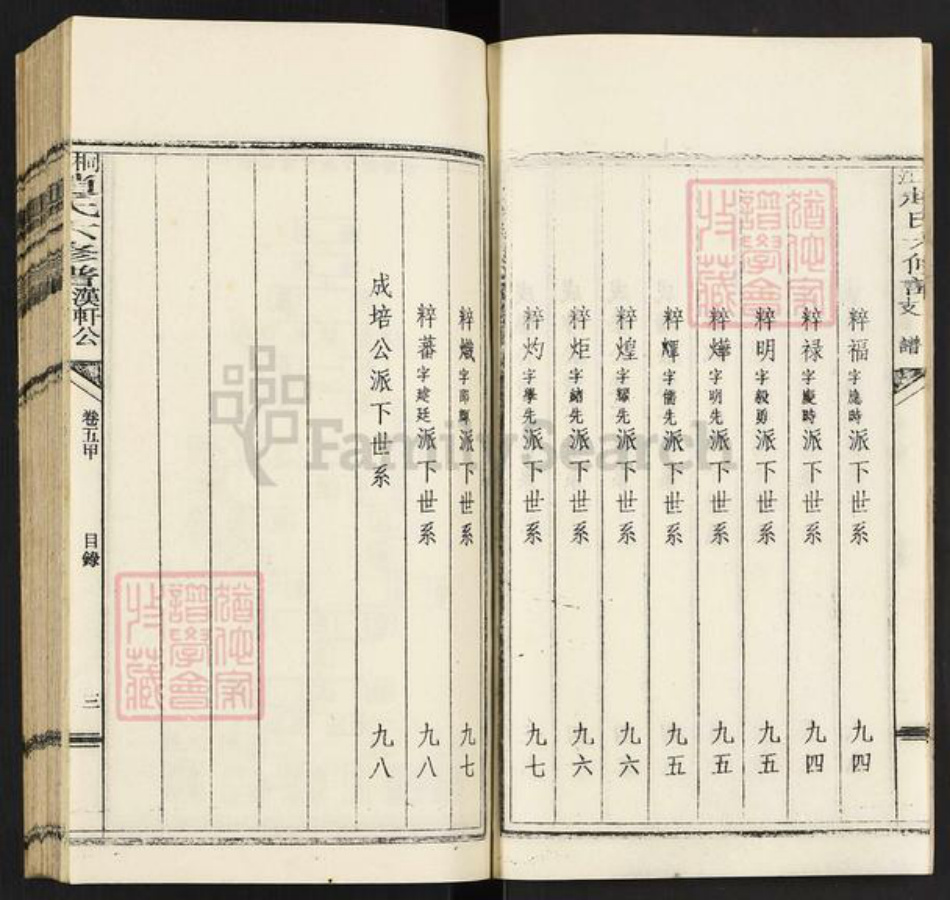 粹福字應時派下世系 九四
粹禄字慶時派下世系 九四
粹明字毅勇派下世系 九五
粹燁字明先派下世系 九五
粹輝字儒先派下世系 九五
粹煌字耀先派下世系 九六
粹炬字緒先派下世系 九六
粹灼字學先派下世系 九七
粹熾派下世系 九七
粹蕃字建廷派下世系 九八
成培公派下世系 九八
桐趙氏六修譜漢軒公 卷五甲 目錄 三
支譜
猶他家譜學會收藏
猶他家譜學會收藏
FamilySearch